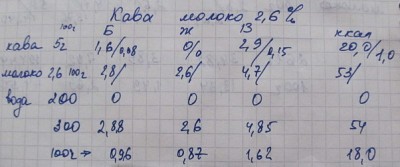 Кава молоко 2,6%
100г Б Ж В ккал
кава 5г 1,6/0,08 0/0 2,9/0,15 20,0/1,0
молоко 2,6 100г 2,8/ 2,6/ 4,7/ 53/
вода 200 0 0 0 0
300 2,88 2,6 4,85 54
100г → 0,96 0,87 1,62 18,0